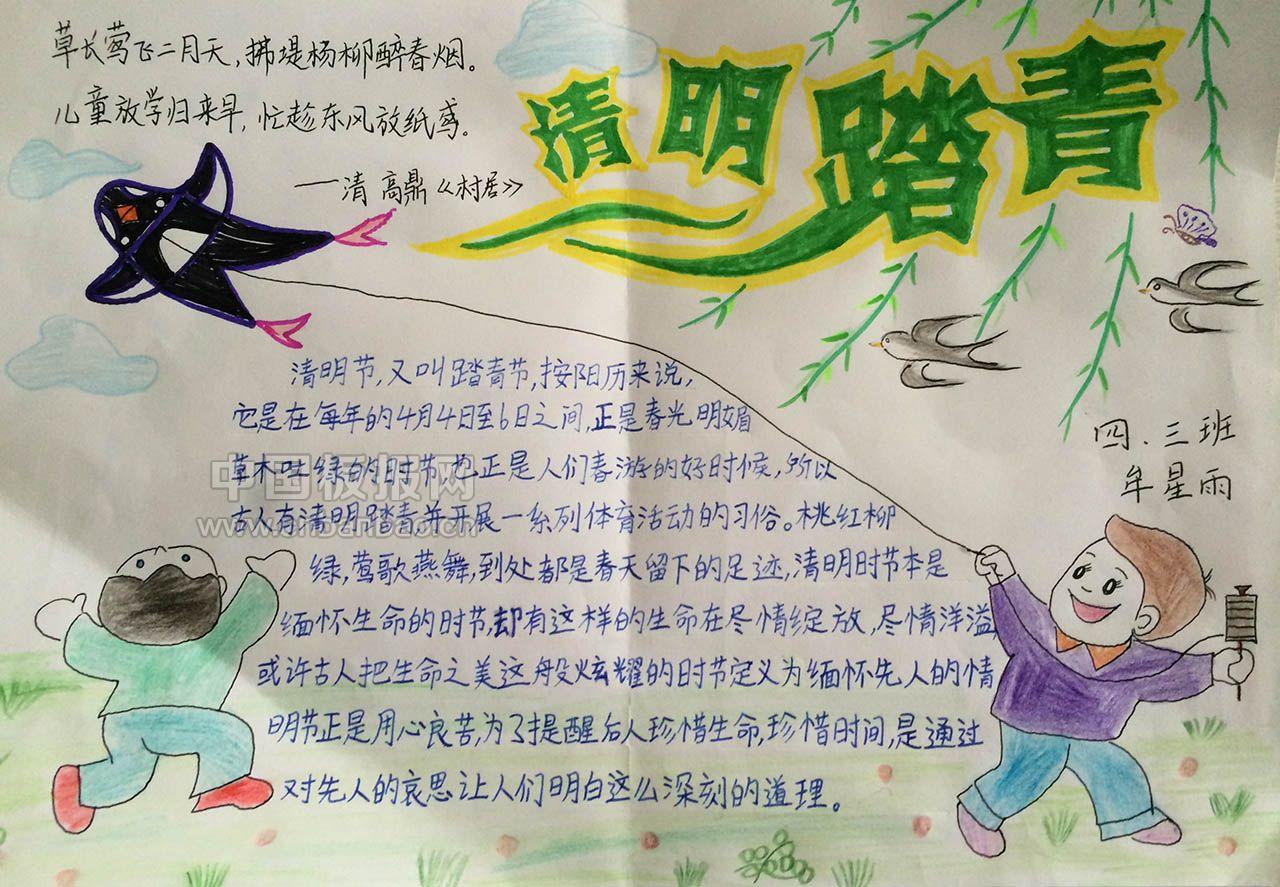 草长莺飞二月天，拂堤杨柳醉春烟。
儿童放学归来早，忙趁东风放纸鸢。
——清 高鼎《村居》
清明踏青
清明节，又叫踏青节，按阳历来说，
它是在每年的4月4日至6日之间，正是春光明媚
草木吐绿的时节，也正是人们春游的好时候，所以
古人有清明踏青并开展一系列体育活动的习俗。桃红柳
绿，莺歌燕舞，到处都是春天留下的足迹，清明时节本是
缅怀生命的时节，却有这样的生命在尽情绽放，尽情洋溢
或许古人把生命之美这般炫耀的时节定义为缅怀先人的情
明节正是用心良苦，为了提醒后人珍惜生命，珍惜时间，是通过
对先人的哀思让人们明白这么深刻的道理。
四.三班
牟星雨
中国板报网
www.cnbanbao.com